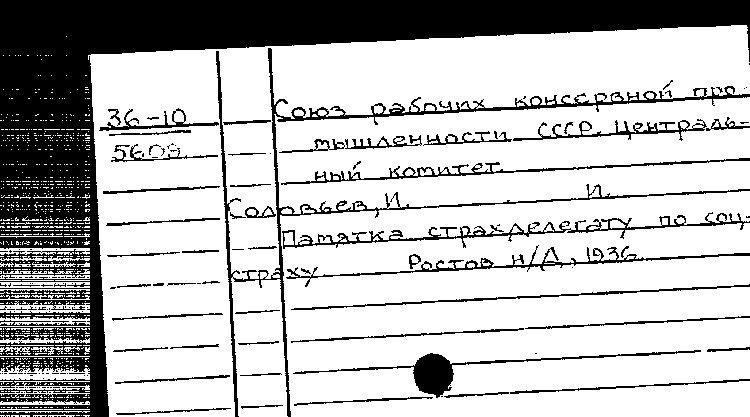 36-10 Союз рабочих консервной про-
5609 мышленности СССР. Централь-
ный комитет.
Соловьев, И. И.
Памятка страхделегату по соц-
страху. Ростов н/Д, 1936.